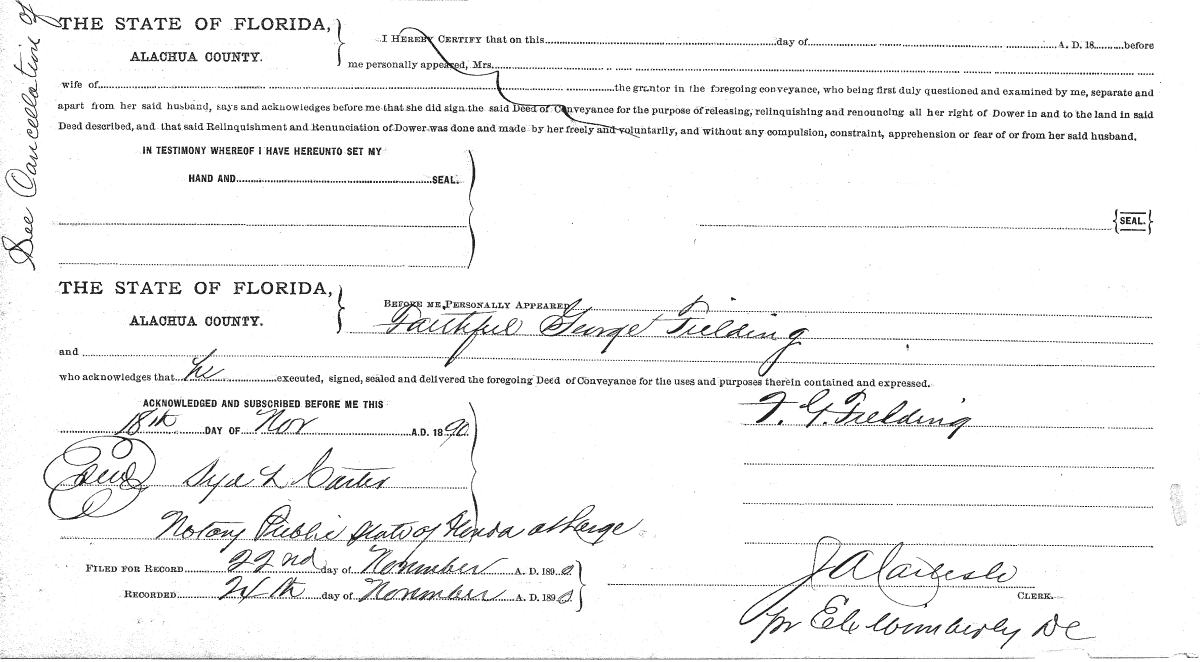 See Cancellation of
THE STATE OF FLORIDA,
ALACHUA COUNTY.
I HEREBY CERTIFY that on this day of A. D. 18 before
me personally appeared, Mrs.
wife of the grantor in the foregoing conveyance, who being first duly questioned and examined by me, separate and
apart from her said husband, says and acknowledges before me that she did sign the said Deed of Conveyance for the purpose of releasing, relinquishing and renouncing all her right of Dower in and to the land in said
Deed described, and that said Relinquishment and Renunciation of Dower was done and made by her freely and voluntarily, and without any compulsion, constraint, apprehension or fear of or from her said husband.
IN TESTIMONY WHEREOF I HAVE HEREUNTO SET MY
HAND AND SEAL.
{SEAL.}
THE STATE OF FLORIDA,
ALACHUA COUNTY.
BEFORE ME, PERSONALLY APPEARED
Faithful George Fielding
and
who acknowledges that he executed, signed, sealed and delivered the foregoing Deed of Conveyance for the uses and purposes therein contained and expressed.
ACKNOWLEDGED AND SUBSCRIBED BEFORE ME THIS
18th DAY OF Nov A.D. 1890
F. G. Fielding
Syd L Carter
Notary Public State of Florida at Large
FILED FOR RECORD 22nd day of November A. D. 1890
RECORDED 24th day of November A. D. 1890
J A Carlisle
CLERK.
pr Wimberly DC